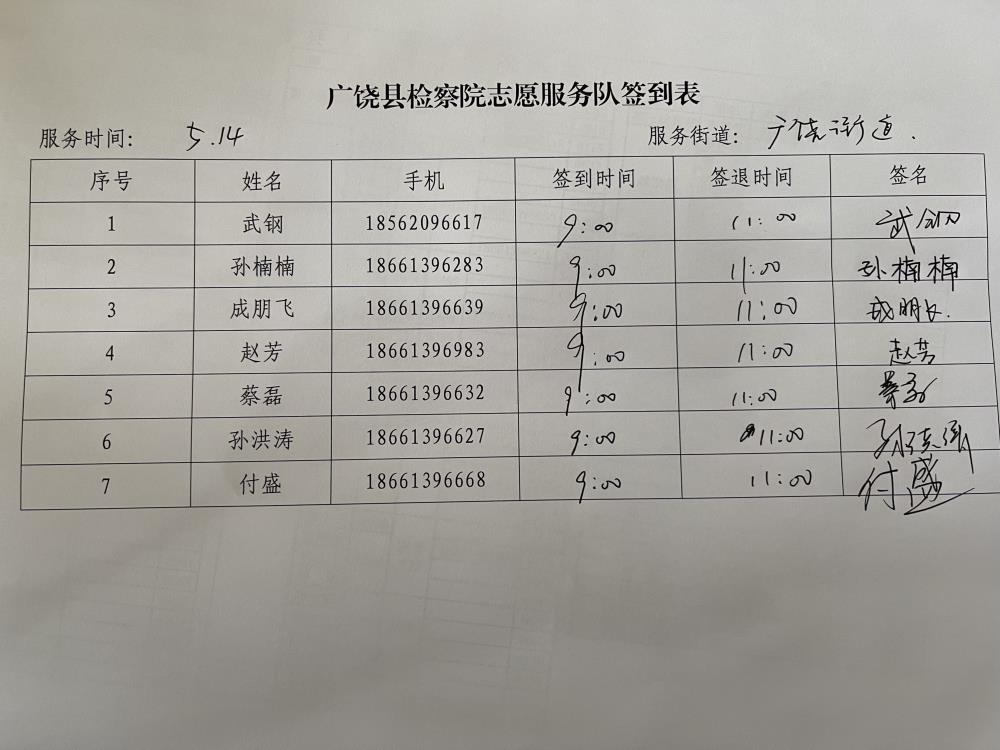 广饶县检察院志愿服务队签到表
服务时间: 5.14 服务街道: 广饶街道.
序号 姓名 手机 签到时间 签退时间 签名
1 武钢 18562096617 9:00 11:00 武钢
2 孙楠楠 18661396283 9:00 11:00 孙楠楠
3 成朋飞 18661396639 9:00 11:00 成朋飞.
4 赵芳 18661396983 9:00 11:00 赵芳
5 蔡磊 18661396632 9:00 11:00 蔡磊
6 孙洪涛 18661396627 9:00 11:00 孙洪涛
7 付盛 18661396668 9:00 11:00 付盛